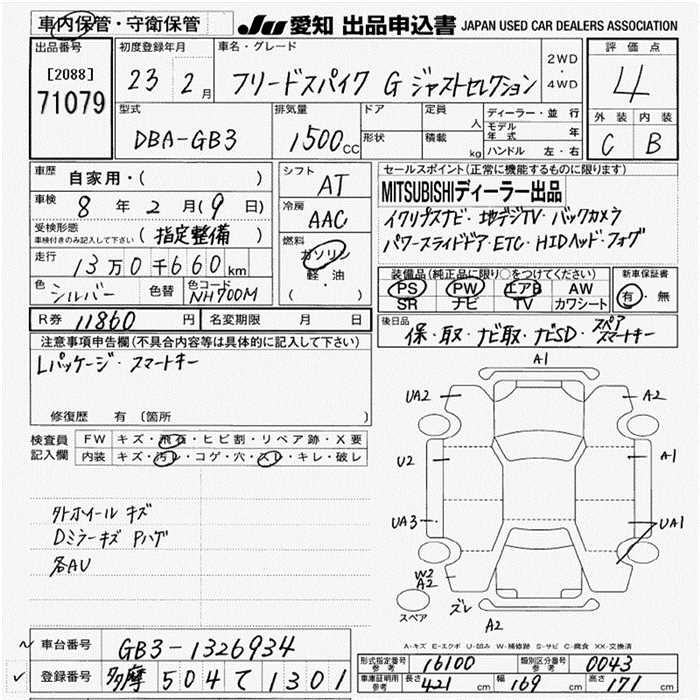 車内保管・守衛保管 JU 愛知 出品申込書 JAPAN USED CAR DEALERS ASSOCIATION
出品番号 初度登録年月 車名・グレード 2WD・4WD 評価点
[2088] 71079 23 2月 フリードスパイク G ジャストセレクション 4
型式 排気量 ドア 定員 ディーラー・並行 外装 内装
DBA-GB3 1500cc 形状 積載 人 kg モデル年式 年 ハンドル 左・右 C B
車歴 自家用・( ) シフト AT セールスポイント(正常に機能するものに限ります)
車検 8年2月(9日) 冷房 AAC MITSUBISHIディーラー出品
受検形態 (指定整備) イクリプスナビ・地デジTV・バックカメラ
車検付きのみ記入して下さい 燃料 ガソリン 軽・油 ( ) パワースライドドア・ETC・HIDヘッド・フォグ
走行 13万0千660km 装備品(純正品に限り○をつけてください) 新車保証書
色 シルバー 色替 色コード NH700M PS PW エアB AW 有・無
SR ナビ TV カワシート
R券 11860円 名変期限 月 日 後日品 保・取・ナビ取・ナビSD・スペアスマートキー
注意事項申告欄(不具合内容等は具体的に記入して下さい)
Lパッケージ・スマートキー
修復歴 有(箇所 )
検査員 FW キズ・飛石・ヒビ割・リペア跡・X要
記入欄 内装 キズ・汚レ・コゲ・穴・スレ・キレ・破レ
A1
UA2 A2
U2 A1
外ホイール キズ
Dミラーキズ Pハゲ
各AU
UA3 UA1
W2
A2
スペア ズレ A2
A-キズ E-エクボ U-凹み W-補修跡 S-サビ C-腐食 XX-交換済
車台番号 GB3-1326934 型式指定番号 参考 16100 類別区分番号 参考 0043
登録番号 多摩 504 て 1301 車庫証明用 参考 長さ 421cm 幅 169cm 高さ 171cm